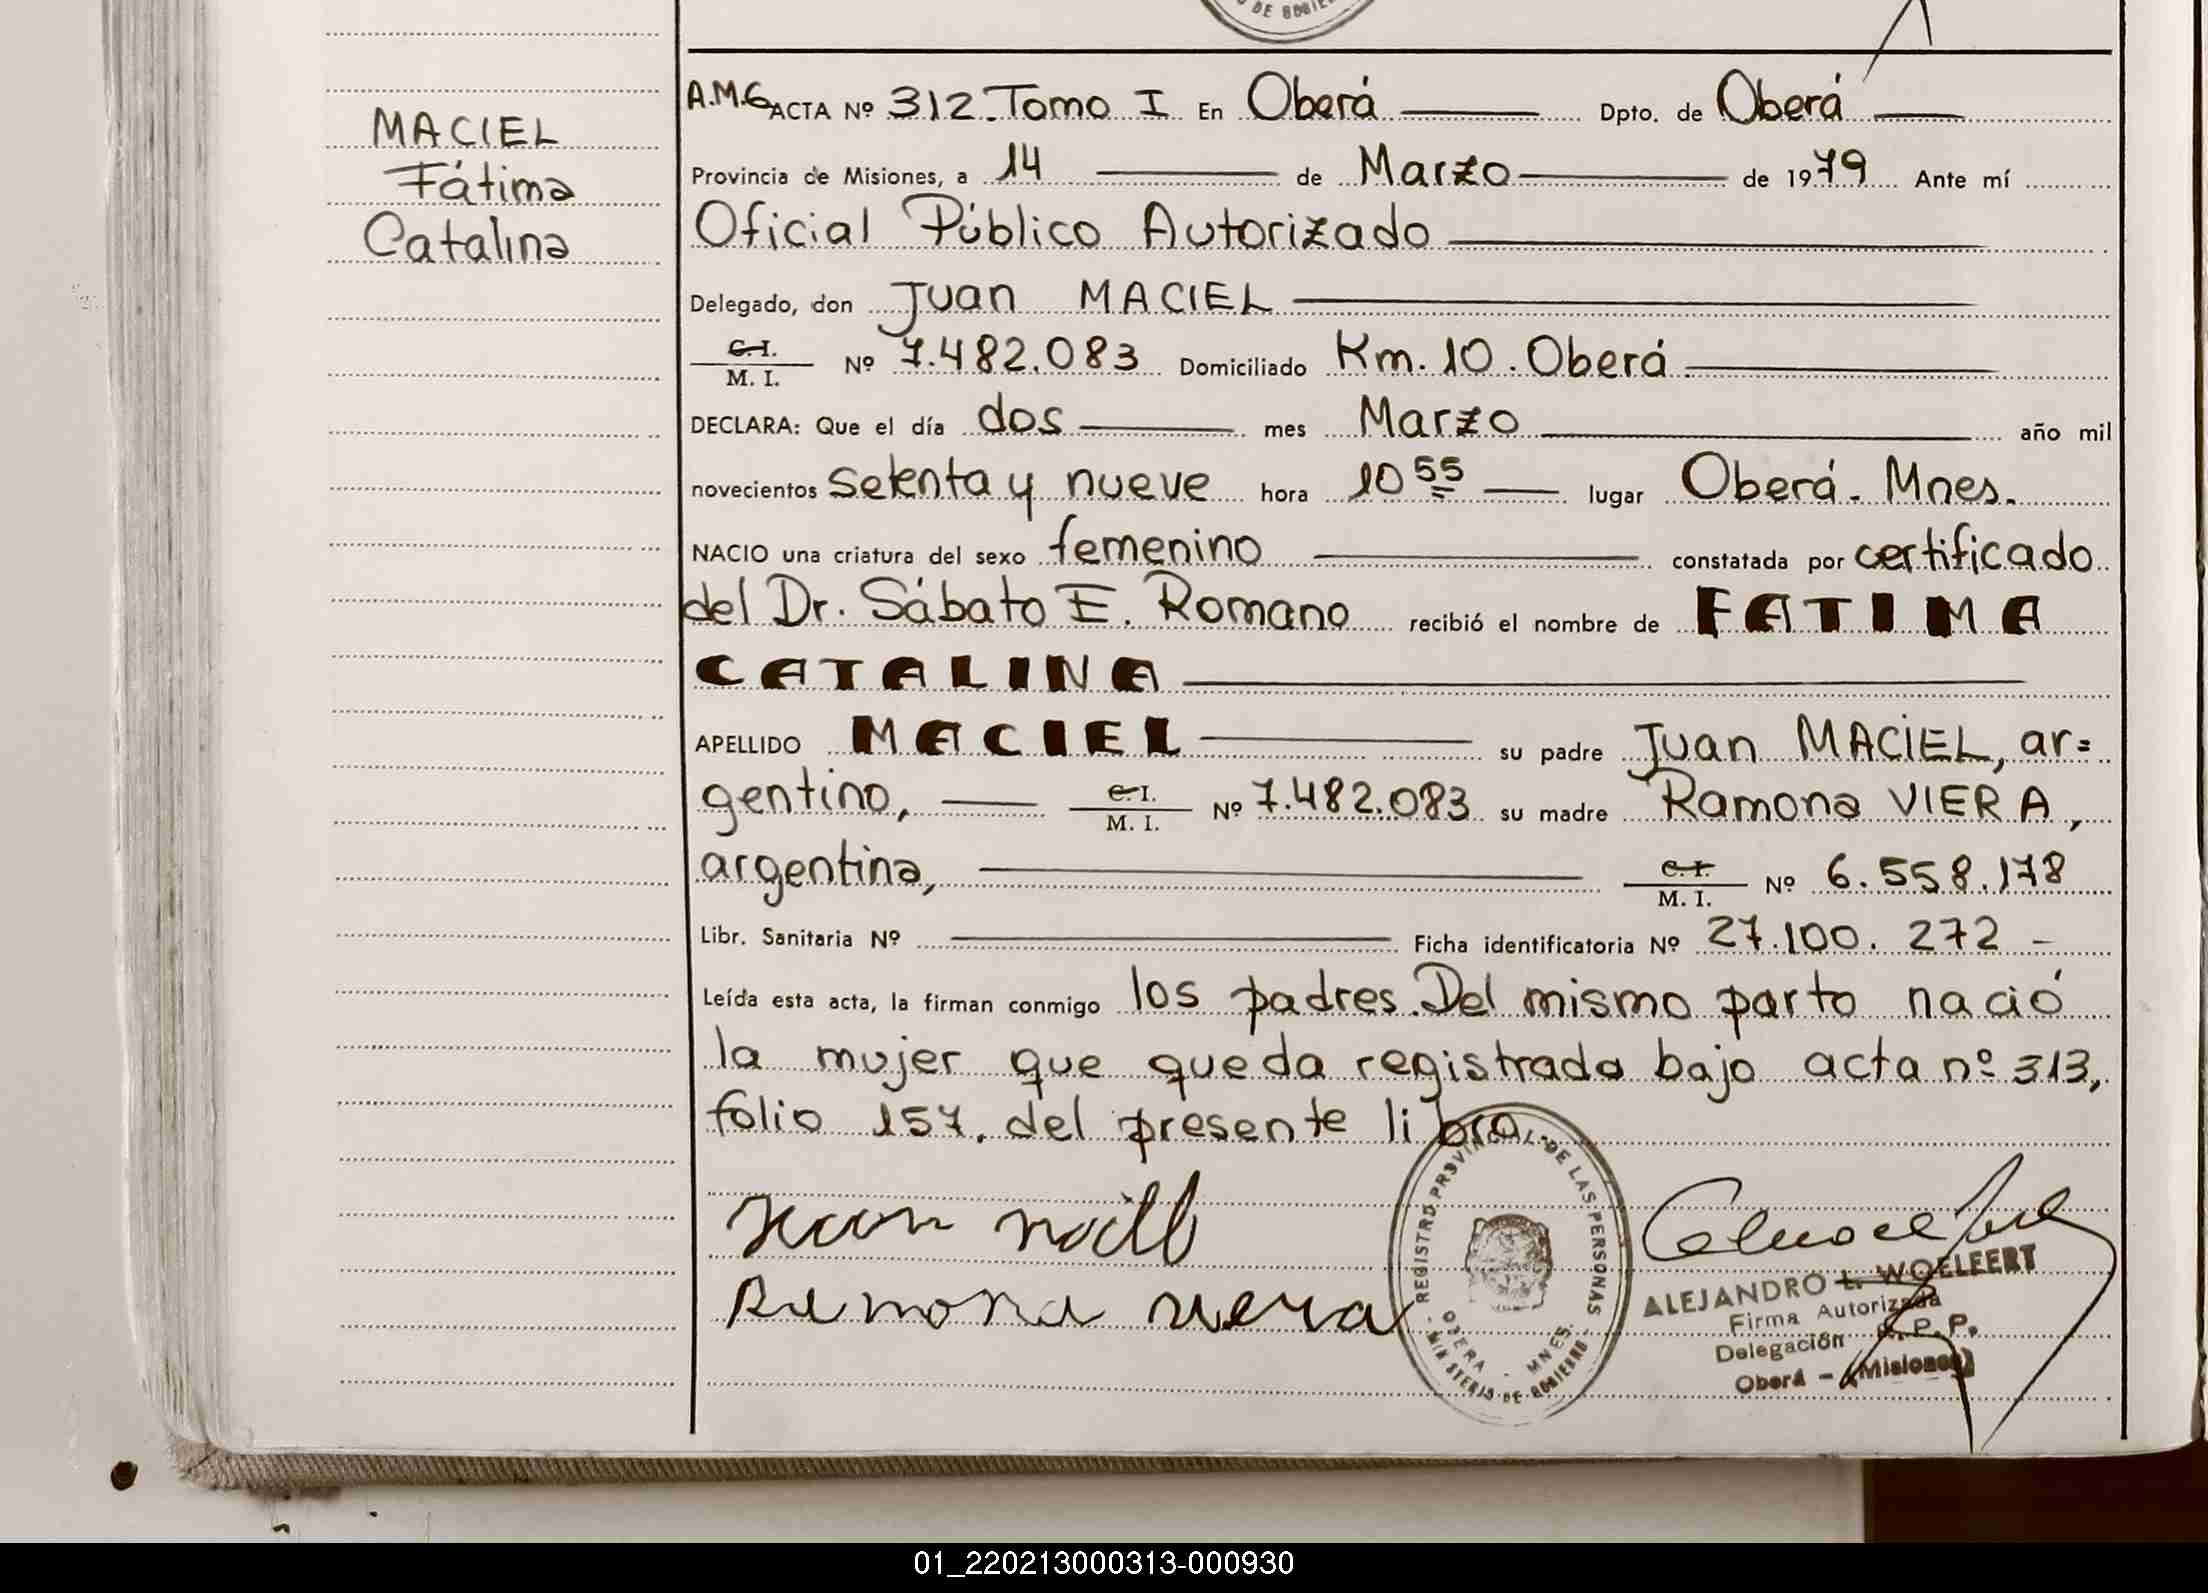 O DE GOBIER
MACIEL
Fátima
Catalina
A.M.G ACTA Nº 312. Tomo I En Oberá Dpto. de Oberá
Provincia de Misiones, a 14 de Marzo de 1979 Ante mí
Oficial Público Autorizado
Delegado, don Juan MACIEL
C. I.
M. I.
Nº 7.482.083 Domiciliado Km. 10. Oberá
DECLARA: Que el día dos mes Marzo año mil
novecientos setenta y nueve hora 10 55 lugar Oberá. Mnes.
NACIO una criatura del sexo femenino constatada por certificado
del Dr. Sábato E. Romano recibió el nombre de FATIMA
CATALINA
APELLIDO MACIEL su padre Juan MACIEL, ar=
gentino, C. I. / M. I. Nº 7.482.083 su madre Ramona VIERA,
argentina, C. I. / M. I. Nº 6.558.178
Libr. Sanitaria Nº Ficha identificatoria Nº 27.100.272 -
Leída esta acta, la firman conmigo los padres. Del mismo parto nació
la mujer que queda registrada bajo acta nº 313,
folio 157, del presente libro.
Ramona viera
REGISTRO PROVINCIAL DE LAS PERSONAS
OBERA - MNES.
MINISTERIO DE GOBIERNO
ALEJANDRO L. WOELFERT
Firma Autorizada
Delegación R. P. P.
Oberá - (Misiones)
01_220213000313-000930